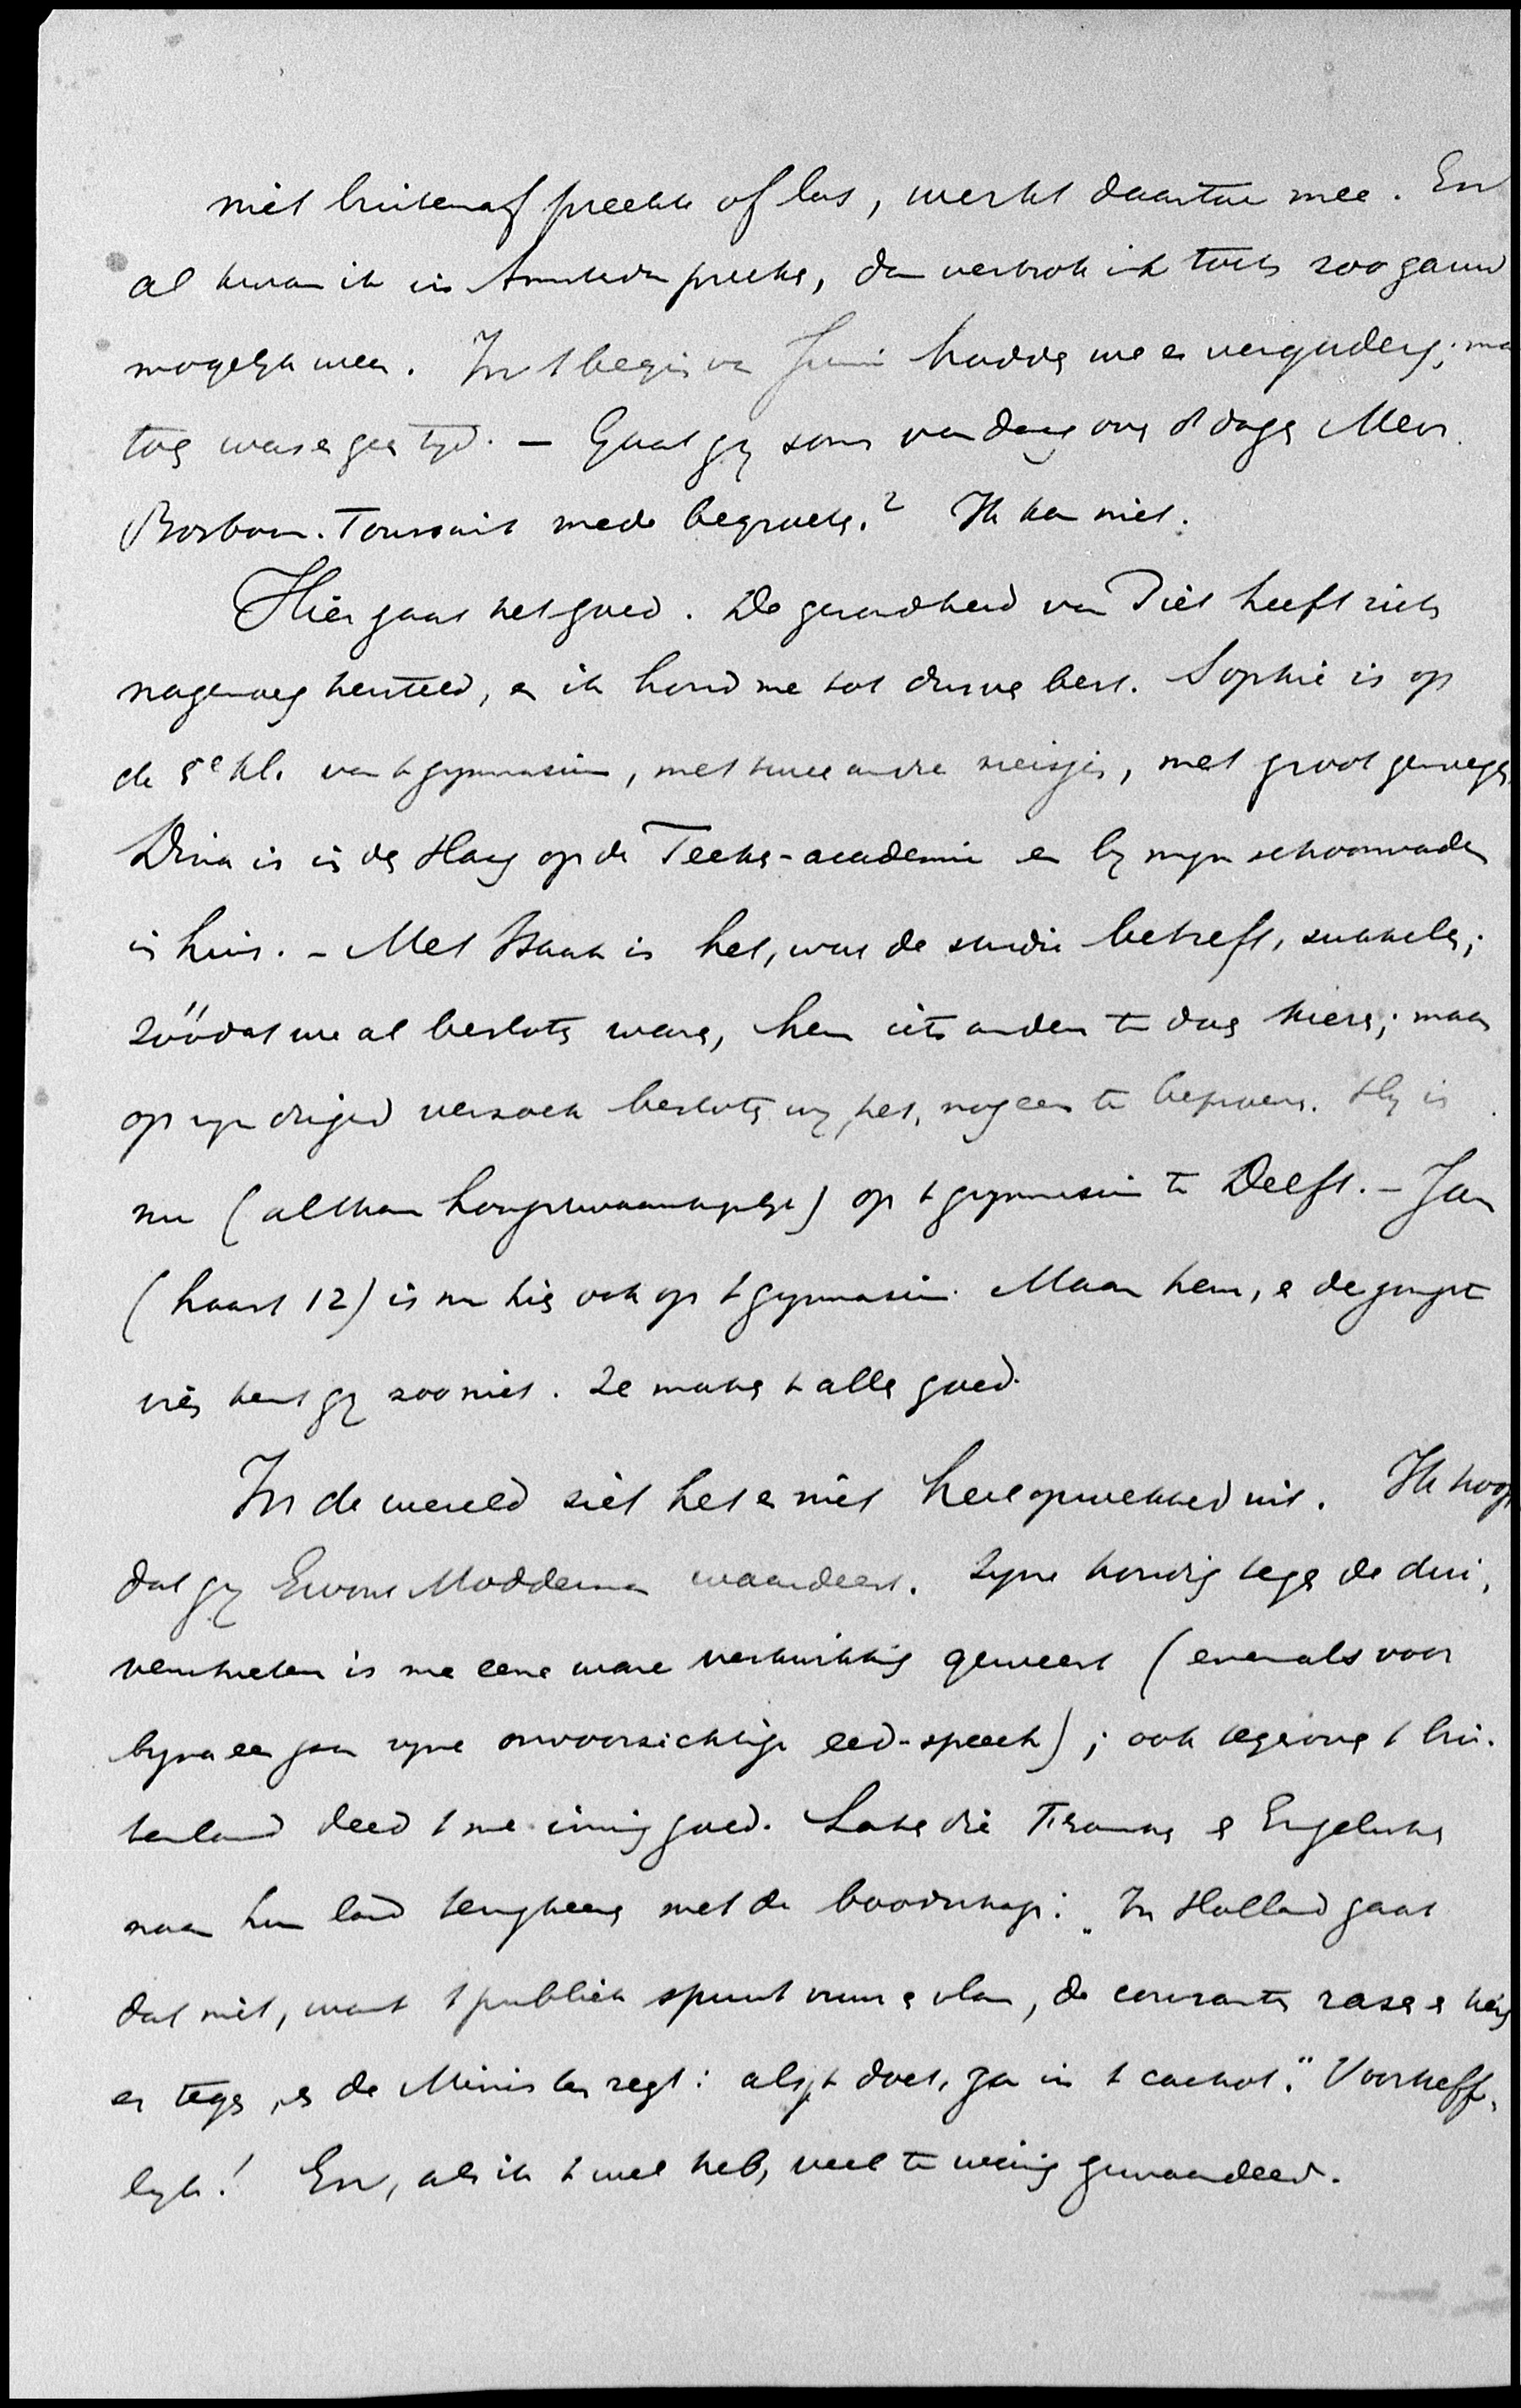 niet buitenaf preekte of las, werkt daartoe mee. En
al kwam ik in Amsterdam preeken, dan vertrok ik toch zoo gauw
mogelyk weer. In 't begin van Juni hadden we er vergadering; maar
toen was er geen tyd. – Gaat gy soms vandaag over 8 dagen Mevr.
Bosboom-Toussaint mede begroeten? Ik kan niet.
Hier gaat het goed. De gezondheid van Piet heeft zich
nagenoeg hersteld, en ik houd me tot dusver best. Sophie is op
de 5e kl. van 't gymnasium, met twee andre meisjes, met groot genoegen.
Dina is in den Haag op de Teeken-academie en by myn schoonvader
in huis. – Met Isaak is het, wat de studie betreft, sukkelen;
zóódat we al besloten waren, hem iets anders te doen kiezen; maar
op zyn dringend verzoek besloten wy het, nog eens te beproeven. Hy is
nu (althans hoogstwaarschynlyk) op 't gymnasium te Delft. – Jan
(haast 12) is nu hier ook op 't gymnasium. Maar hem, en de jongste
vier kent gy zoo niet. Ze maken 't allen goed.
In de wereld ziet het er niet heel opwekkend uit. Ik hoop
dat gy Modderman waardeert. Zyne houding tegen de dui-
is me eene ware verkwikking geweest (evenals voor
byna een jaar zyne onvoorzichtige eed-speech); ook tegenover 't bui-
tenland deed 't me innig goed. Laten die Franschen en Engelschen
naar hun land terugkeeren met de boodschap: "In Holland gaat
dat niet, want 't publiek spuwt vuur en vlam, de couranten razen en
er tegen, en de Minister zegt: als je 't doet, ga je in 't cachot." Voortreffe-
lyk! En, als ik 't wel heb, veel te weinig gewaardeerd.